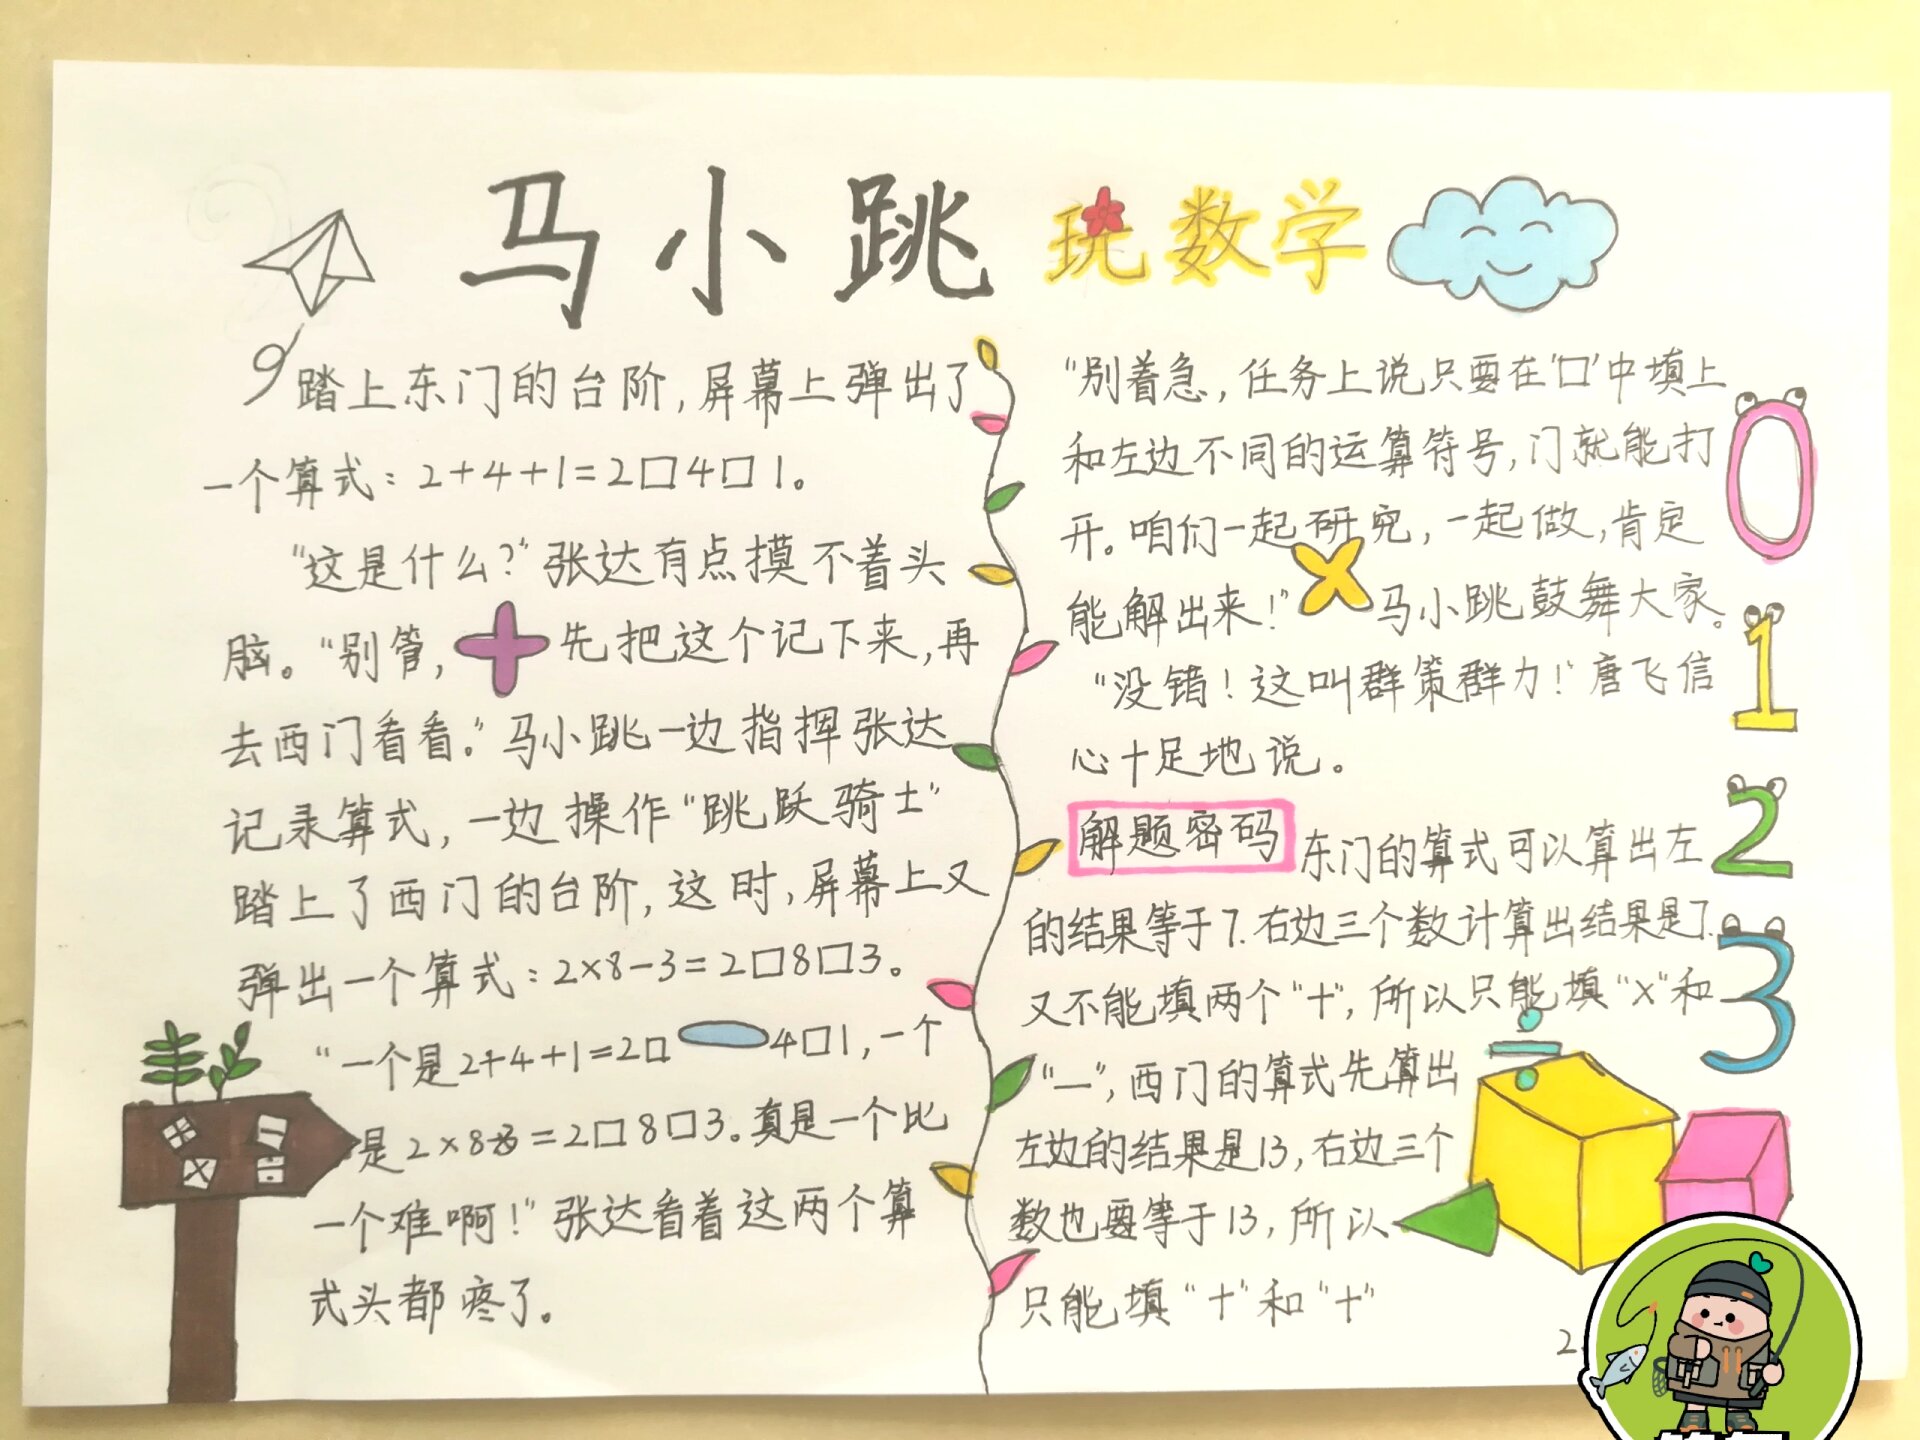 马小跳玩数学
踏上东门的台阶,屏幕上弹出了
一个算式:2+4+1=2口4口1。
“这是什么?”张达有点摸不着头
脑。“别管,先把这个记下来,再
去西门看看。”马小跳一边指挥张达
记录算式,一边操作“跳跃骑士”
踏上了西门的台阶,这时,屏幕上又
弹出一个算式:2×8-3=2口8口3。
“一个是2+4+1=2口4口1,一个
是2×8-3=2口8口3。真是一个比
一个难啊!”张达看着这两个算
式头都疼了。
“别着急,任务上说只要在‘口’中填上
和左边不同的运算符号,门就能打
开。咱们一起研究,一起做,肯定
能解出来!”马小跳鼓舞大家。
“没错!这叫群策群力!”唐飞信
心十足地说。
解题密码 东门的算式可以算出左
的结果等于7.右边三个数计算出结果是7.
又不能填两个“+”,所以只能填“×”和
“—”,西门的算式先算出
左边的结果是13,右边三个
数也要等于13,所以
只能填“+”和“+”
0
1
2
3
2